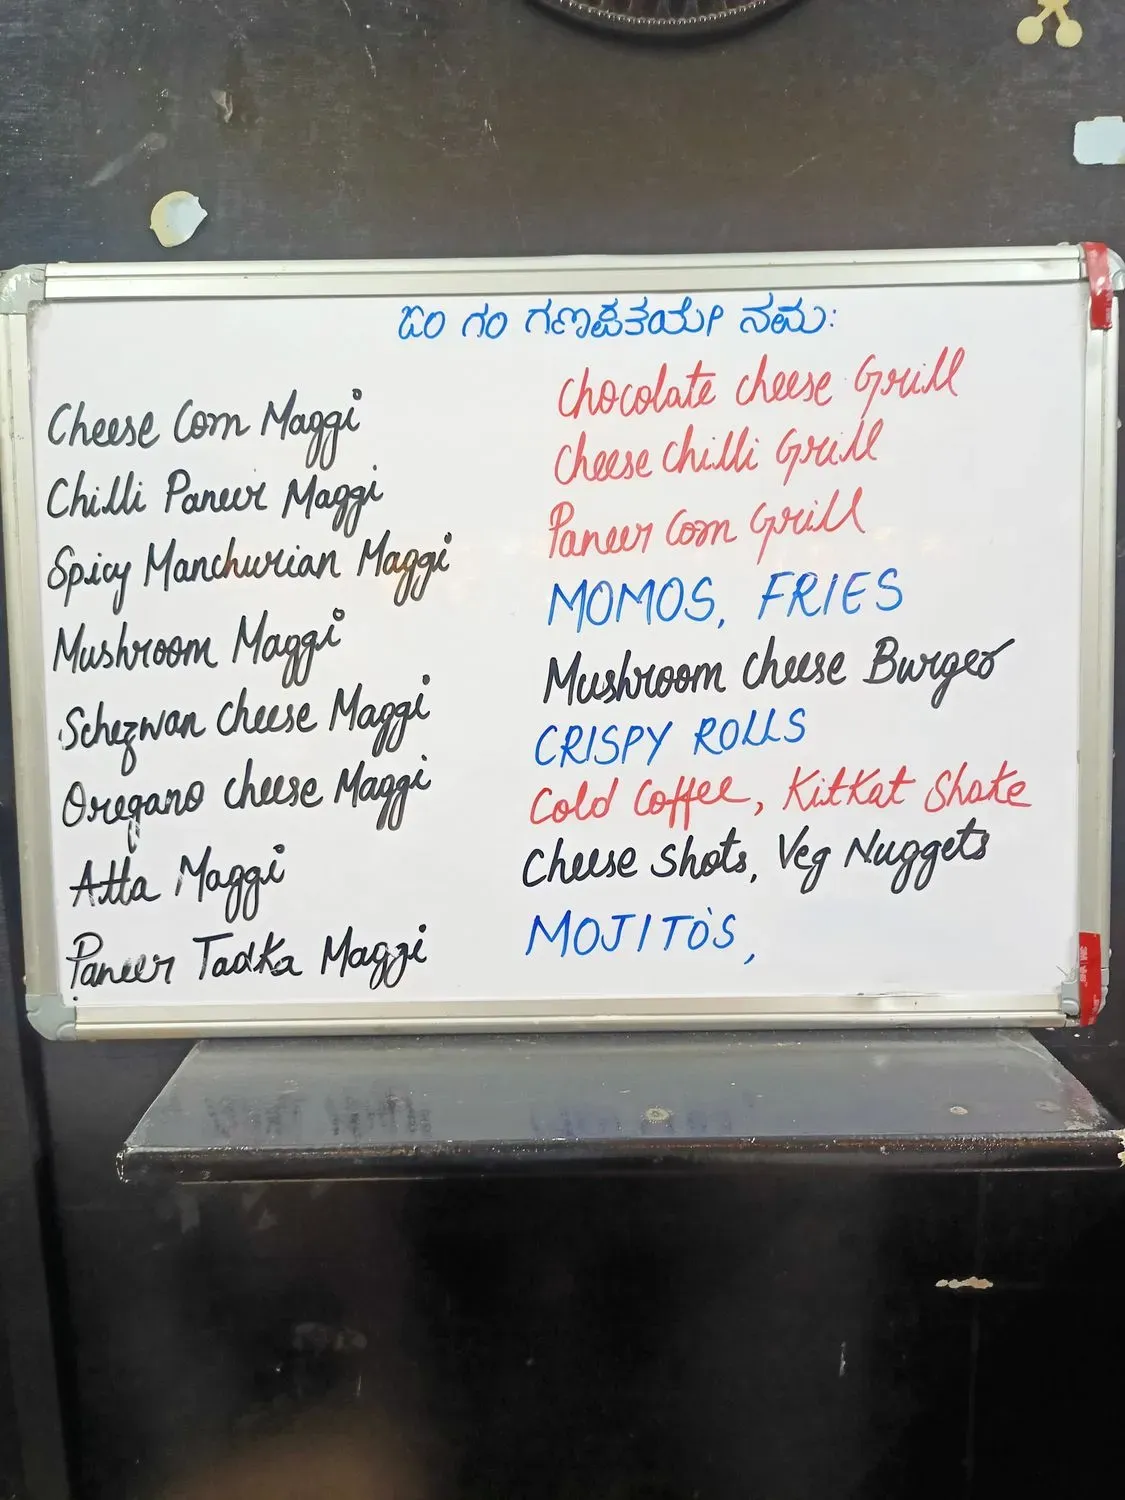 ಓಂ ಗಂ ಗಣಪತಯೇ ನಮಃ
Cheese Corn Maggi
Chilli Paneer Maggi
Spicy Manchurian Maggi
Mushroom Maggi
Schezwan Cheese Maggi
Oregano Cheese Maggi
Atta Maggi
Paneer Tadka Maggi
Chocolate Cheese Grill
Cheese Chilli Grill
Paneer Corn Grill
MOMOS, FRIES
Mushroom Cheese Burger
CRISPY ROLLS
Cold Coffee, KitKat Shake
Cheese Shots, Veg Nuggets
MOJITO'S,